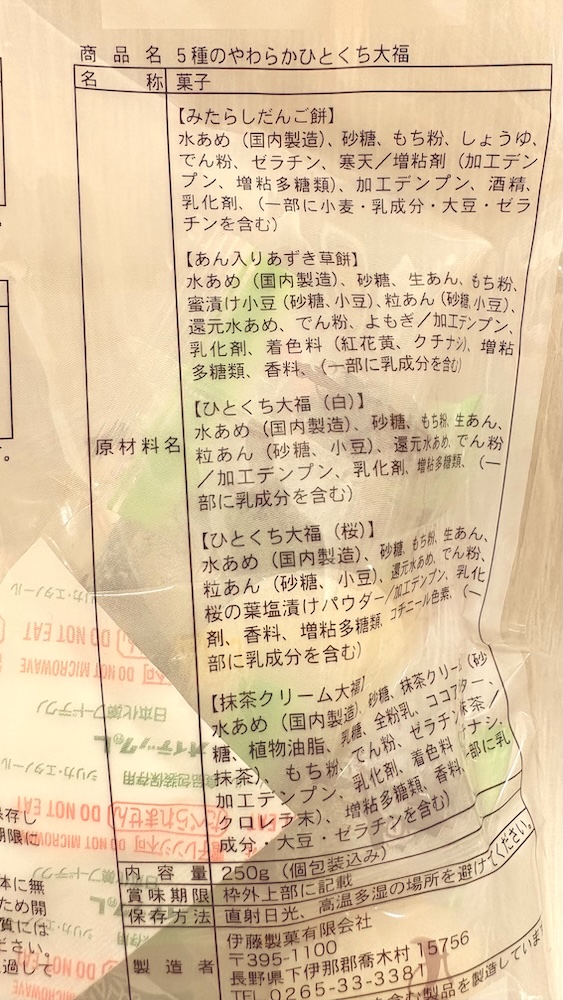 商品名 5種のやわらかひとくち大福
名称 菓子
原材料名
【みたらしだんご餅】
水あめ（国内製造）、砂糖、もち粉、しょうゆ、
でん粉、ゼラチン、寒天／増粘剤（加工デン
プン、増粘多糖類）、加工デンプン、酒精、
乳化剤、（一部に小麦・乳成分・大豆・ゼラ
チンを含む）
【あん入りあずき草餅】
水あめ（国内製造）、砂糖、生あん、もち粉、
蜜漬け小豆（砂糖、小豆）、粒あん（砂糖、小豆）、
還元水あめ、でん粉、よもぎ／加工デンプン、
乳化剤、着色料（紅花黄、クチナシ）、増粘
多糖類、香料、（一部に乳成分を含む）
【ひとくち大福（白）】
水あめ（国内製造）、砂糖、もち粉、生あん、
粒あん（砂糖、小豆）、還元水あめ、でん粉
／加工デンプン、乳化剤、増粘多糖類、（一
部に乳成分を含む）
【ひとくち大福（桜）】
水あめ（国内製造）、砂糖、もち粉、生あん、
粒あん（砂糖、小豆）、還元水あめ、でん粉、
桜の葉塩漬けパウダー／加工デンプン、乳化
剤、香料、増粘多糖類、コチニール色素、（一
部に乳成分を含む）
【抹茶クリーム大福】
水あめ（国内製造）、砂糖、抹茶クリーム（砂
糖、植物油脂、乳糖、全粉乳、ココアバター、
抹茶）、もち粉、でん粉、ゼラチン、抹茶／
加工デンプン、乳化剤、着色料
クロレラ末）、増粘多糖類、香料、（一部に乳
成分・大豆・ゼラチンを含む）
内容量 250g（個包装込み）
賞味期限 枠外上部に記載
保存方法 直射日光、高温多湿の場所を避けてください。
製造者
伊藤製菓有限会社
〒395-1100
長野県下伊那郡喬木村15756
TEL 0265-33-3381
含む製品を製造していま
シリカ・エタノール
DO NOT EAT
DO NOT MICROWAVE
日本化薬フードテクノ
シリカ・エタノール
食品包装保存用
たべられません
DO NOT EAT
電子レンジ不可
DO NOT MICROWAVE
保存し
期限に
体に無
ため開
質には
ださい。
過して